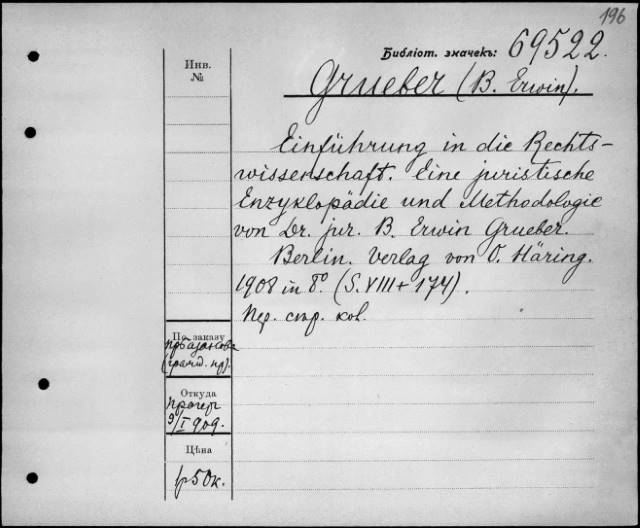 196
Библіот. значекъ: 69522.
Инв.
№
Grueber (B. Erwin).
Einführung in die Rechts-
wissenschaft. Eine juristische
Enzyklopädie und Methodologie
von Dr. jur. B. Erwin Grueber.
Berlin. Verlag von O. Häring.
1908 in 8° (S. VIII + 174).
Пер. стр. ков.
По заказу
Откуда
9/I 909.
Цѣна
1р 50к.